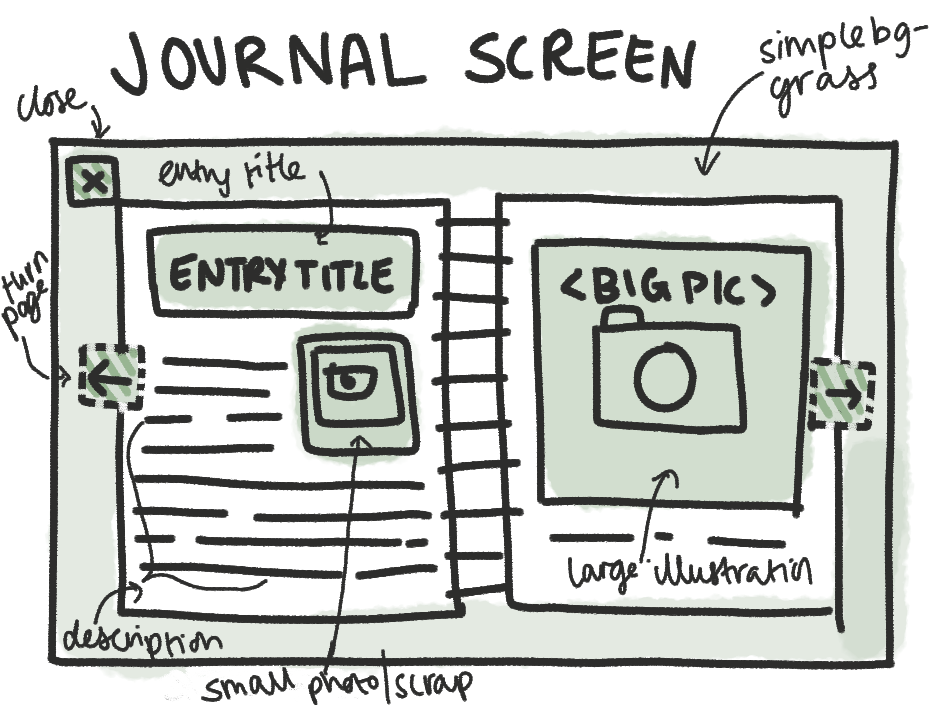 JOURNAL SCREEN
simple bg-
grass
close
X
entry title
ENTRY TITLE
turn
page
<BIG PIC>
large illustration
description
small photo/scrap